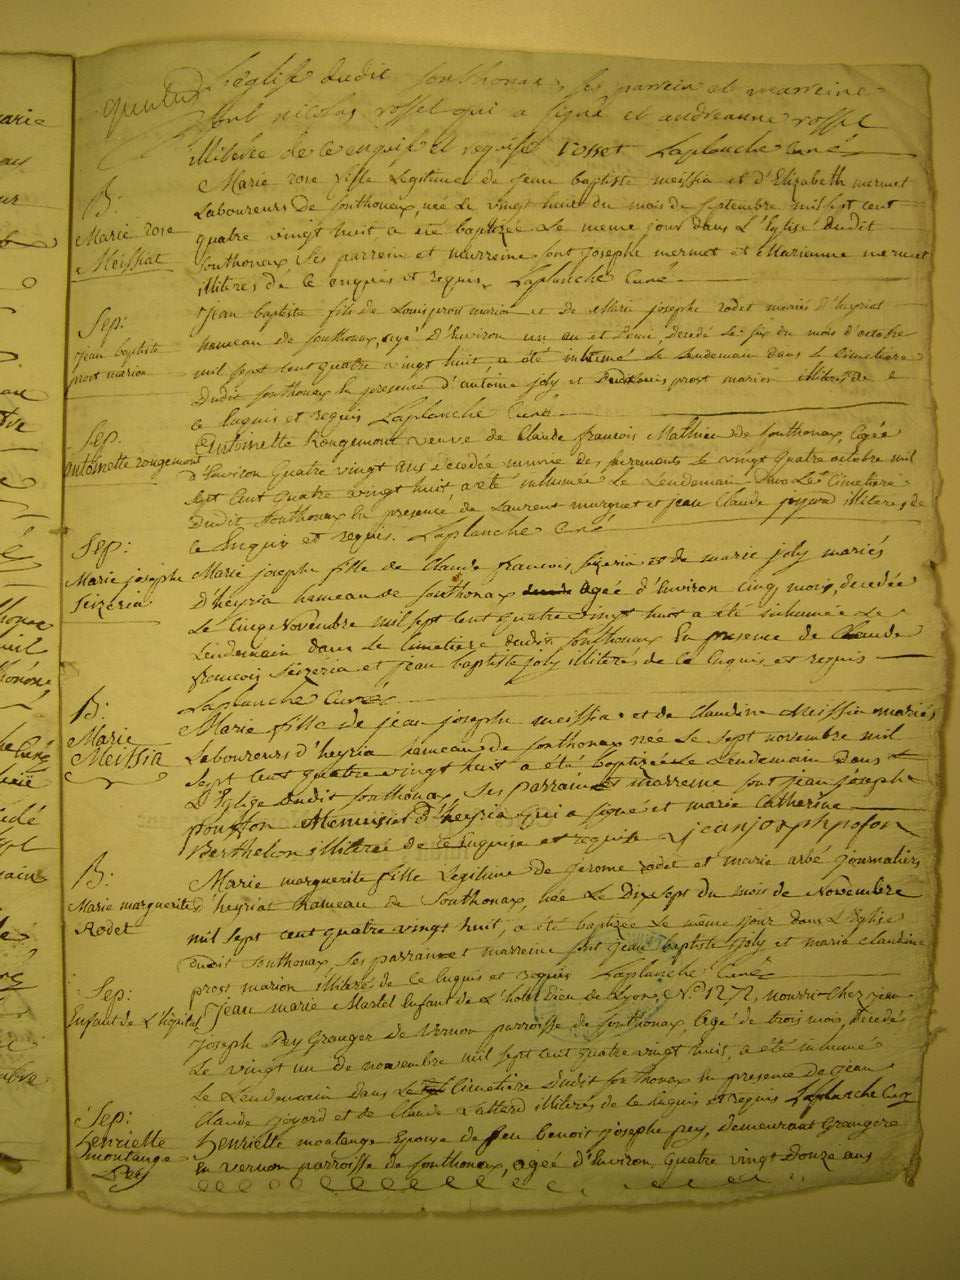 l'église dudit sonthonax, ses parrein et marreine
sont nicolas rosset qui a signé et andreanne rosset
illiterée de ce enquise et requise rosset Laplanche Curé
B:
Marie rose
Meissiat
Marie rose fille Légitime de jean baptiste meissia et d'Elizabeth mermet
Laboureurs De sonthonax, née Le vingt neuf du mois de septembre mil sept cent
quatre vingt huit a eté baptizée Le meme jour dans L'Eglise dudit
sonthonax Ses parrein et marreine sont Josephe mermet et Marienne mermet
illitérés de ce enquis et requis, Laplanche Curé
Sep:
jean baptiste
prost marion
jean baptiste fils de Louis prost marion et de Marie josephe rodet mariés d'heyriat
hameau de sonthonax, agé d'Environ un an et demi, Decedé Le six du mois d'octobre
mil sept cent quatre vingt huit, a été inhumé Le Lendemain dans le Cimetiere
Dudit sonthonax En presence d'antoine joly et Louis prost marion illiterés de
ce Enquis et requis Laplanche Curé
Sep:
antoinette rougemont
Antoinette Rougemont veuve de Claude francois Mathieu de sonthonax, Agée
d'Environ Quatre vingt ans decedée munie des sacrements le vingt quatre octobre mil
sept cent quatre vingt huit, a eté inhumée Le Lendemain dans Le Cimetiere
dudit sonthonax En presence de Laurent murguet et jean Claude joyard illiterés de
ce Enquis et requis. Laplanche Curé
Sep:
Marie josephe
seizeria
Marie josephe fille de Claude francois seizeria et de marie joly mariés
D'heyria hameau de sonthonax Agée d'Environ cinq mois, decedée
Le Cinq Novembre mil sept cent quatre vingt huit a été inhumée Le
Lendemain dans Le Cimetiere dudit sonthonax En presence de Claude
francois seizeria et jean baptiste joly illiterés de ce Enquis et requis
Laplanche Curé
B:
Marie
Meissia
Marie fille de jean joseph meissia et de Claudine Meissia mariés
Laboureurs d'heyria hameau de sonthonax née Le sept novembre mil
sept cent quatre vingt huit a été baptizée Le Lendemain dans
L'Eglise dudit sonthonax, Ses parrain et marreine sont jean josephe
ponsson Menusier d'heyria qui a signé et marie Catherine
Berthelion illiterée de ce Enquise et requise jean joseph
B:
Marie marguerite
Rodet
Marie marguerite fille Legitime de jerome rodet et marie arbé journaliers
d'heyriat hameau de Sonthonax, née Le Dix sept du mois de Novembre
mil sept cent quatre vingt huit, a été baptizée Le même jour dans L'Eglise
dudit sonthonax, Ses parrain et marreine sont jean baptiste joly et marie claudine
prost marion illiterés de ce Enquis et requis Laplanche Curé
Sep:
Enfant de L'hôpital
Jean marie Martel Enfant de L'hotel Dieu de Lyon, N.o 1272, nourri chez jean
Joseph Pey Granger de Vernon parroisse de sonthonax, Agé de trois mois, decedé
Le vingt un de novembre mil sept cent quatre vingt huit, a été inhumé
Le Lendemain dans Le Cimetiere Dudit sonthonax En presence de jean
Claude joyard et de Claude illiterés de ce Enquis et requis Laplanche Curé
Sep:
henriette
montange
Henriette montange Epouse de feu benoit josephe pey, demeurant Grangere
En vernon parroisse de sonthonax, agée d'Environ quatre vingt Douze ans